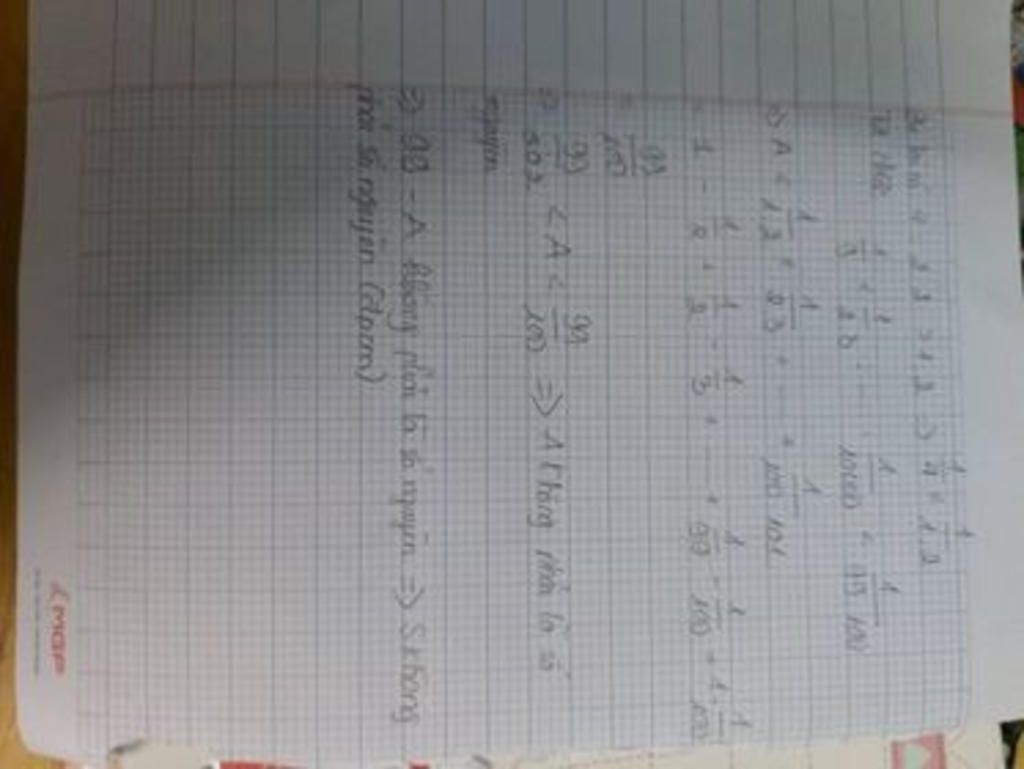 4 = 2.2 > 1.2 => 1/4 < 1/1.2
1/9 < 1/2.3; ... ; 1/10000 < 1/99.100
=> A < 1/1.2 + 1/2.3 + ... + 1/100.101
= 1 - 1/2 + 1/2 - 1/3 + ... + 1/99 - 1/100 + 1 - 1/100
= 99/100
=> 99/202 < A < 99/100 => A không phải là số
nguyên
=> 99 - A không phải là số nguyên => S không
phải số nguyên (đpcm)
MGP